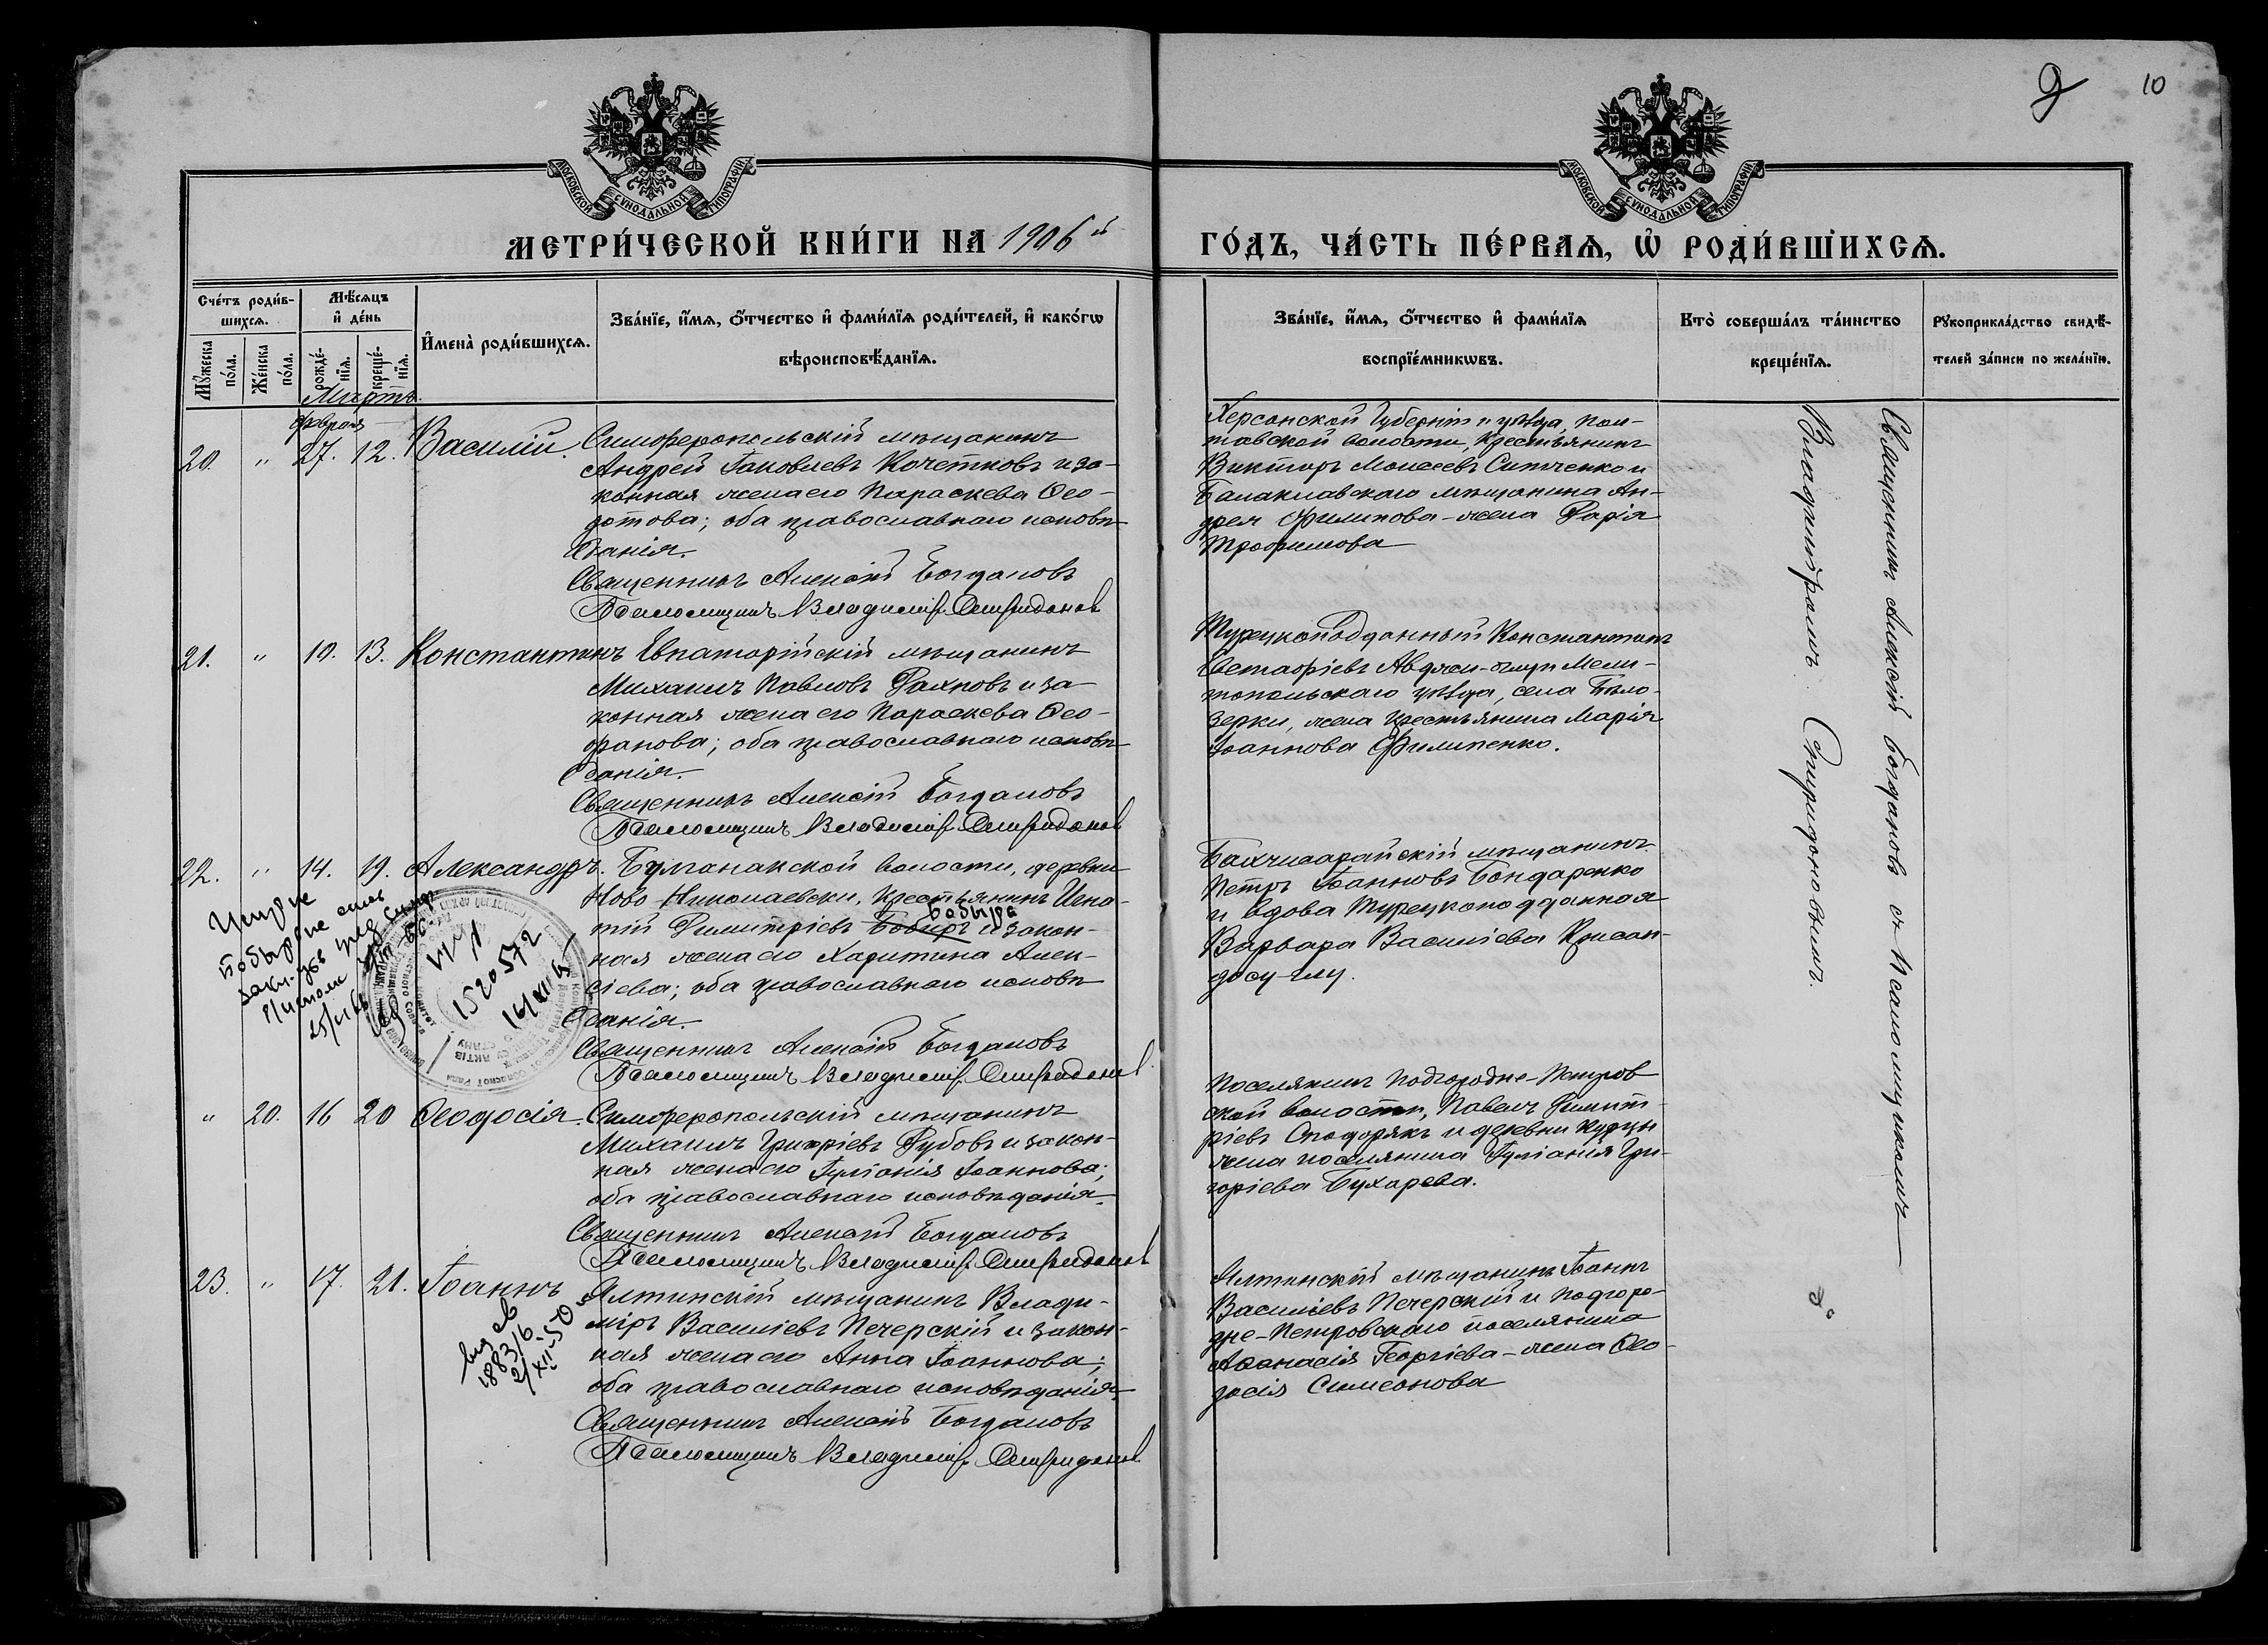 9
10
МОСКОВСКОЙ СѴНОДАЛЬНОЙ ТИПОГРАФІИ
МОСКОВСКОЙ СѴНОДАЛЬНОЙ ТИПОГРАФІИ
МЕТРИ́ЧЕСКОЙ КНИ́ГИ НА 1906й
ГО́ДЪ, ЧА́СТЬ ПЕ́РВАѦ, Ѡ҆ РОДИ́ВШИХСѦ.
Сче́тъ роди́в-
шихсѧ.
Мꙋ́жеска по́ла.
Же́нска по́ла.
Мѣ́сѧцъ и҆ де́нь
рожде́-
нїѧ.
креще́-
нїѧ.
И҆мена̀ роди́вшихсѧ.
Зва́нїе, и҆́мѧ, ѻ҆́тчество и҆ фами́лїѧ роди́телей, и҆ како́гѡ
вѣроисповѣ́данїѧ.
Зва́нїе, и҆́мѧ, ѻ҆́тчество и҆ фами́лїѧ
воспрїе́мникѡвъ.
Кто̀ соверша́лъ та́инство
креще́нїѧ.
Рꙋкоприкла́дство свидѣ́-
телей за́писи по жела́нїю.
Мартъ.
февраля
20. " 27. 12. Василій.
Симферопольскій мѣщанинъ
Андрей Іаковлевъ Кочетковъ и за-
конная жена его Параскева Ѳео-
дотова; оба православнаго исповѣ-
данія.
Священникъ Алексій Богдановъ
Псаломщикъ Владимір Спиридонов
Херсонской губерніи и уѣзда, Пол-
тавской волости, крестьянинъ
Викторъ Моисеевъ Ситченко и
Балаклавскаго мѣщанина Ан-
дрея Филипова - жена Дарія
Трофимова
21. " 10. 13. Константинъ
Евпаторійскій мѣщанинъ
Михаилъ Павловъ Рахновъ и за
конная жена его Параскева Ѳео-
фанова; оба православнаго исповѣ-
данія.
Священникъ Алексій Богдановъ
Псаломщикъ Владимір Спиридонов
Турецкоподданный Константинъ
Авджи-оглу и Мели-
топольскаго уѣзда, села Бѣло-
зерки, жена крестьянина Марія
Іоаннова Филипенко.
22. " 14. 19. Александръ.
Булганакской волости, деревни
Ново-Николаевки, крестьянинъ Игна-
тій Димитріевъ Бобиръ и закон-
Бобыръ
ная жена его Харитина Алек-
сіева; оба православнаго исповѣ-
данія.
Священникъ Алексій Богдановъ
Псаломщикъ Владимір Спиридонов
Бахчисарайскій мѣщанинъ
Петръ Іоанновъ Бондаренко
и вдова Турецкоподданная
Варвара Василіева Крисан-
досу-глу.
1520572
16/XII
" 20. 16 20 Ѳеодосія.
Симферопольскій мѣщанинъ
Михаилъ Григоріевъ Зубовъ и закон-
ная жена его Іуліанія Іоаннова;
оба православнаго исповѣданія.
Священникъ Алексій Богдановъ
Псаломщикъ Владимір Спиридонов
Поселянинъ Подгородне-Петров
ской волости, Павелъ Димит-
ріевъ и деревни Курцы
жена поселянина Іуліанія Гри-
горіева Бухарева.
23. " 17. 21. Іоаннъ
Ялтинскій мѣщанинъ Влади-
міръ Василіевъ Печерскій и закон-
ная жена его Анна Іоаннова;
оба православнаго исповѣданія.
Священникъ Алексій Богдановъ
Псаломщикъ Владимір Спиридонов
Ялтинскій мѣщанинъ Іоаннъ
Василіевъ Печерскій и Подгоро-
дне-Петровскаго поселянина
Аѳанасія Георгіева - жена Ѳео-
досія Симеонова
Священникъ Алексій Богдановъ съ Псаломщикомъ
Владиміромъ Спиридоновымъ.